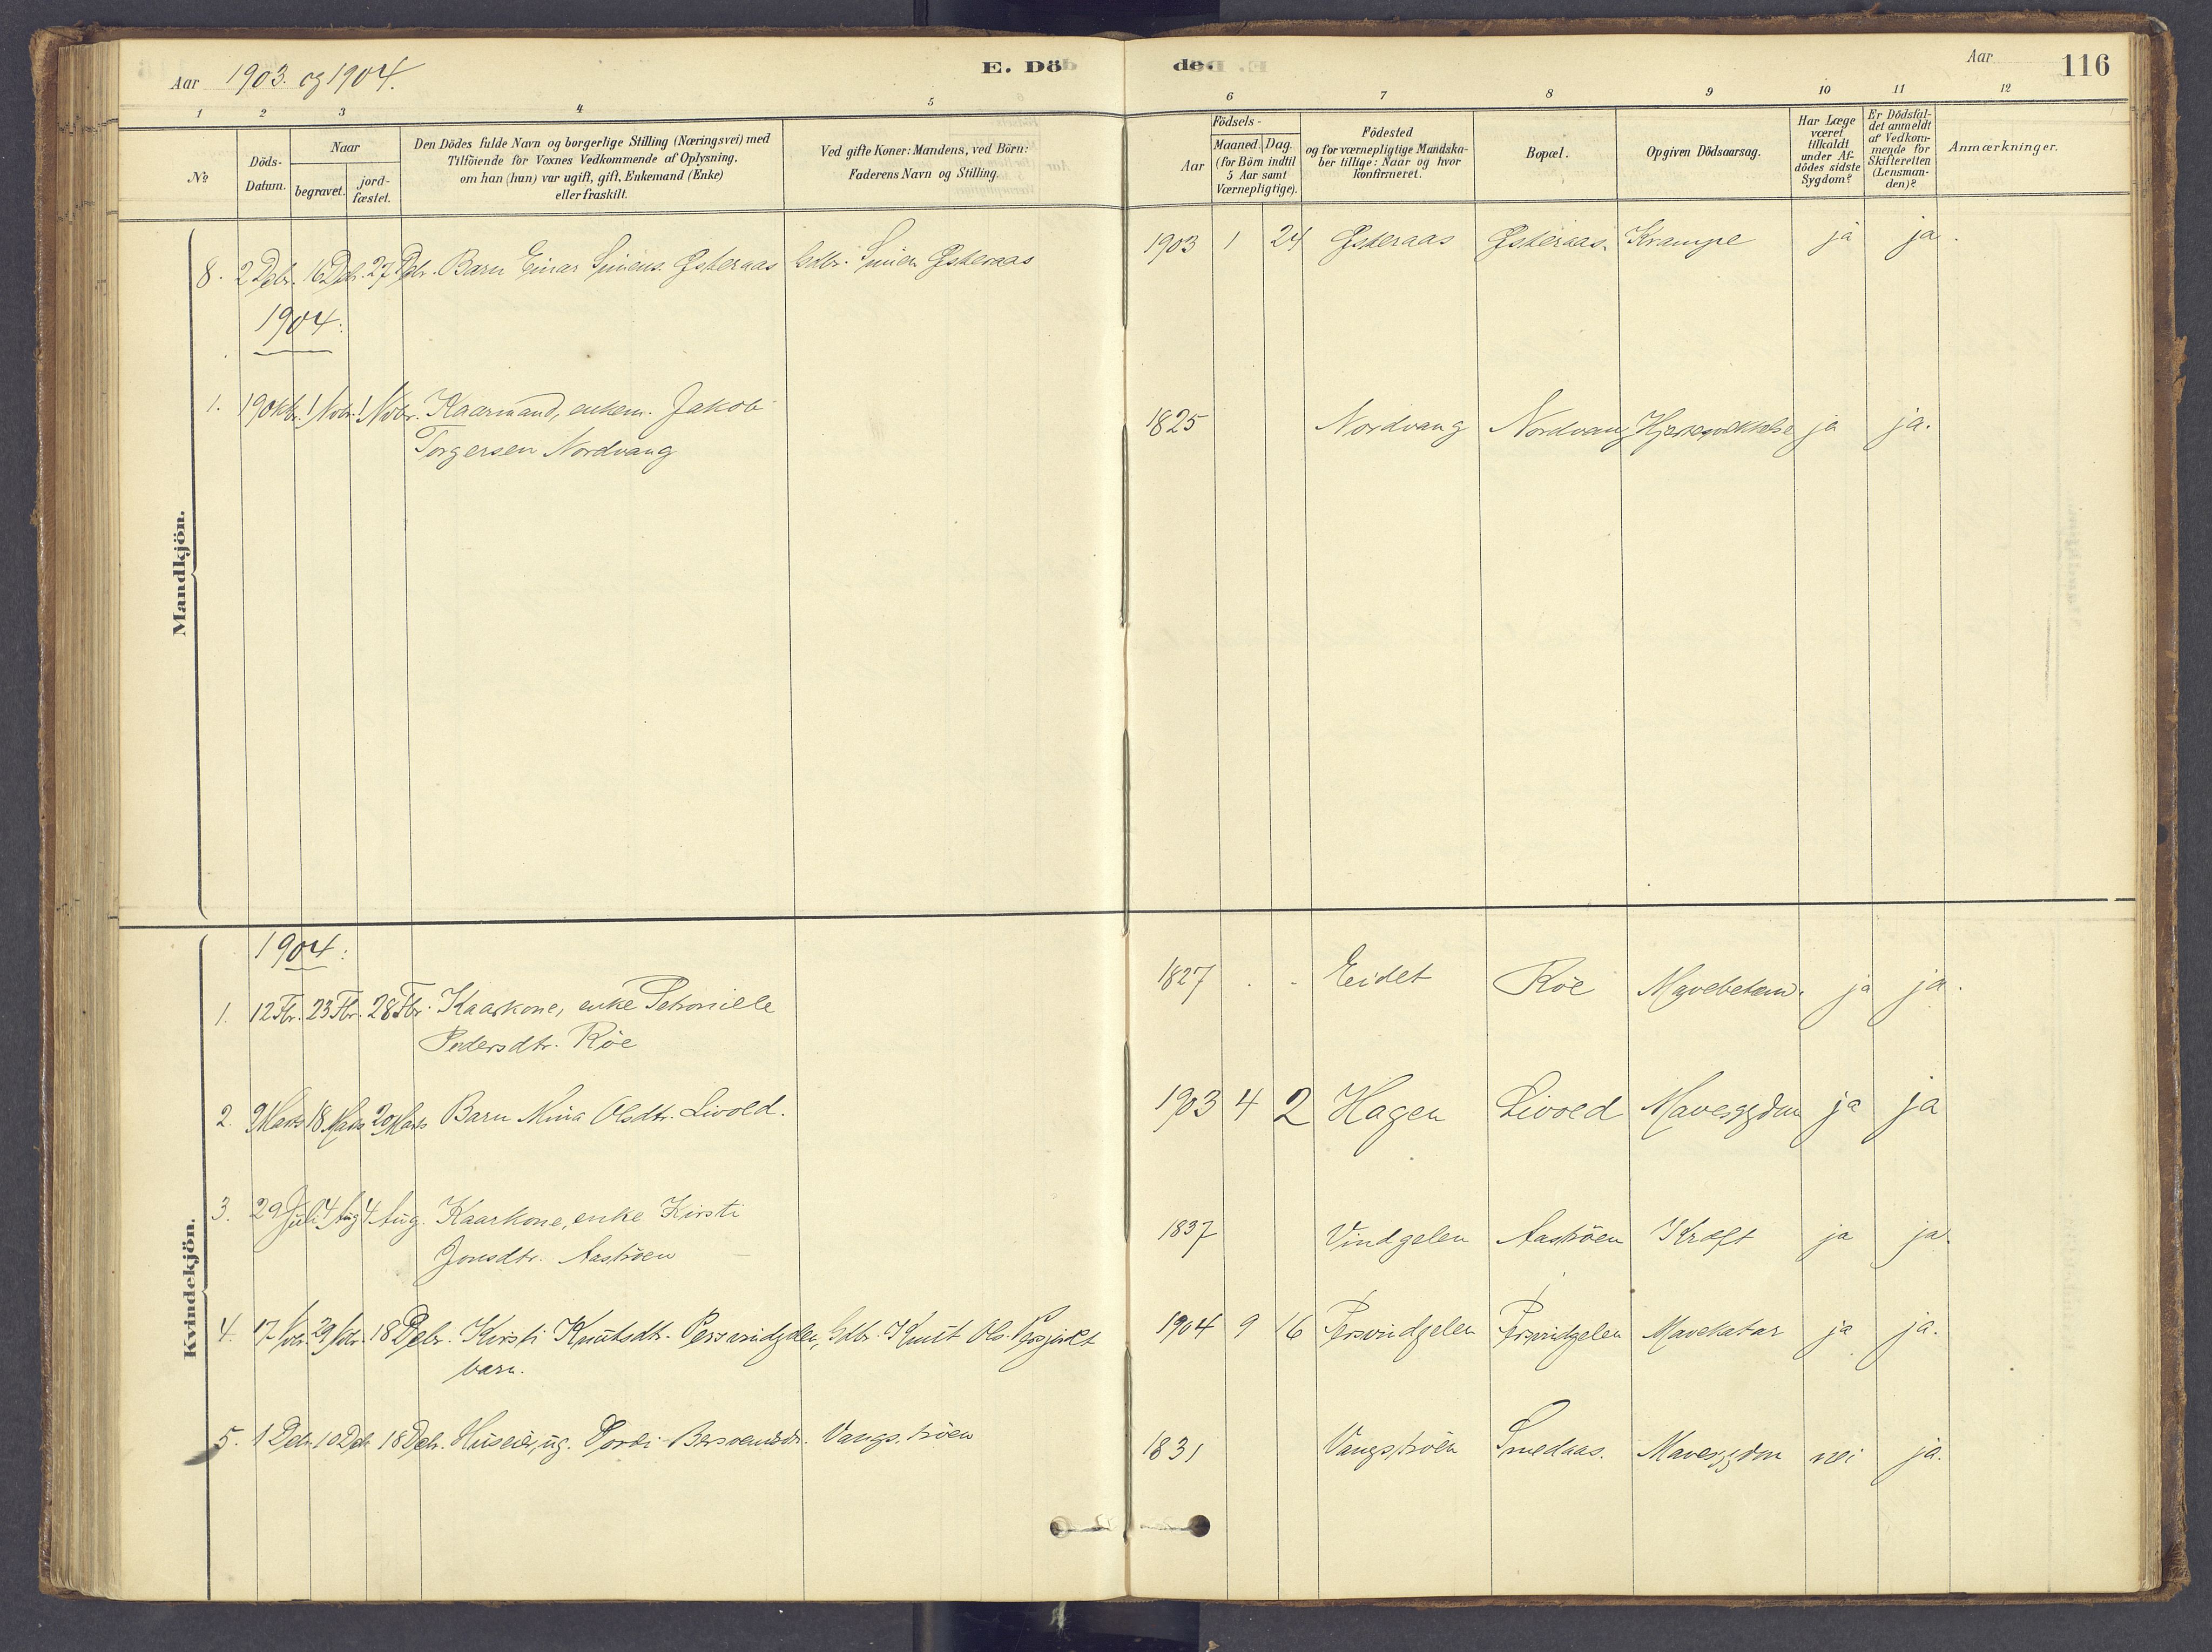 Aar 1903. og 1904.
E. Döde.
Aar
116
1 2 3 4 5 6 7 8 9 10 11 12
No
Döds-Datum.
Naar
begravet.
jord-fæstet.
Den Dödes fulde Navn og borgerlige Stilling (Næringsvei) med
Tilföiende for Voxnes Vedkommende af Oplysning,
om han (hun) var ugift, gift, Enkemand (Enke)
eller fraskilt.
Ved gifte Koner: Mandens, ved Börn:
Faderens Navn og Stilling.
Födsels-
Aar
Maaned. Dag.
(for Börn indtil
5 Aar samt
Værnepligtige).
Födested
og for værnepligtige Mandska-
ber tillige: Naar og hvor
konfirmeret.
Bopæl.
Opgiven Dödsaarsag.
Har Læge
været
tilkaldt
under Af-
dödes sidste
Sygdom?
Er Dödsfal-
det anmeldt
af Vedkom-
mende for
Skifteretten
(Lensman-
den)?
Anmærkninger.
Mandkjön.
8. 2 Debr. 16 Debr. 27 Debr. Barn Einar Simens. Østeraas Gdbr. Simen Østeraas 1903 1 24 Østeraas Østeraas. Krampe ja ja.
1904:
1. 19 Oktbr. 1 Nvbr. 1 Nvbr. Kaarmand, enkem. Jakob 1825 Nordvang Nordvang ja ja.
Torgersen Nordvang
Kvindekjön.
1904:
1. 12 Fbr. 23 Fbr. 28 Fbr. Kaarkone, enke Petronille 1827 . . Eidet Röe Mavebetænd. ja ja.
Pedersdtr. Röe
2. 9 Marts 18 Marts 20 Marts Barn Mina Olsdtr. Livold. 1903 4 2 Hagen Livold Mavesygdom ja ja
3. 29 Juli 4 Aug 4 Aug. Kaarkone, enke Kirsti 1837 Vindgelen Aaströen Kræft ja ja.
Jonsdtr. Aaströen
4. 17 Nvbr. 29 Nvbr. 18 Debr. Kirsti Knutsdtr. Persvindgelen, Gdbr. Knut Ols. 1904 9 16 Persvindgelen Persvindgelen Mavekatar ja ja.
barn.
5. 1 Debr. 10 Debr 18 Debr. Huseier, ug. Bersvendsdr. Vangströen 1831 Vangströen Smedaas. Mavesygdom nei ja.